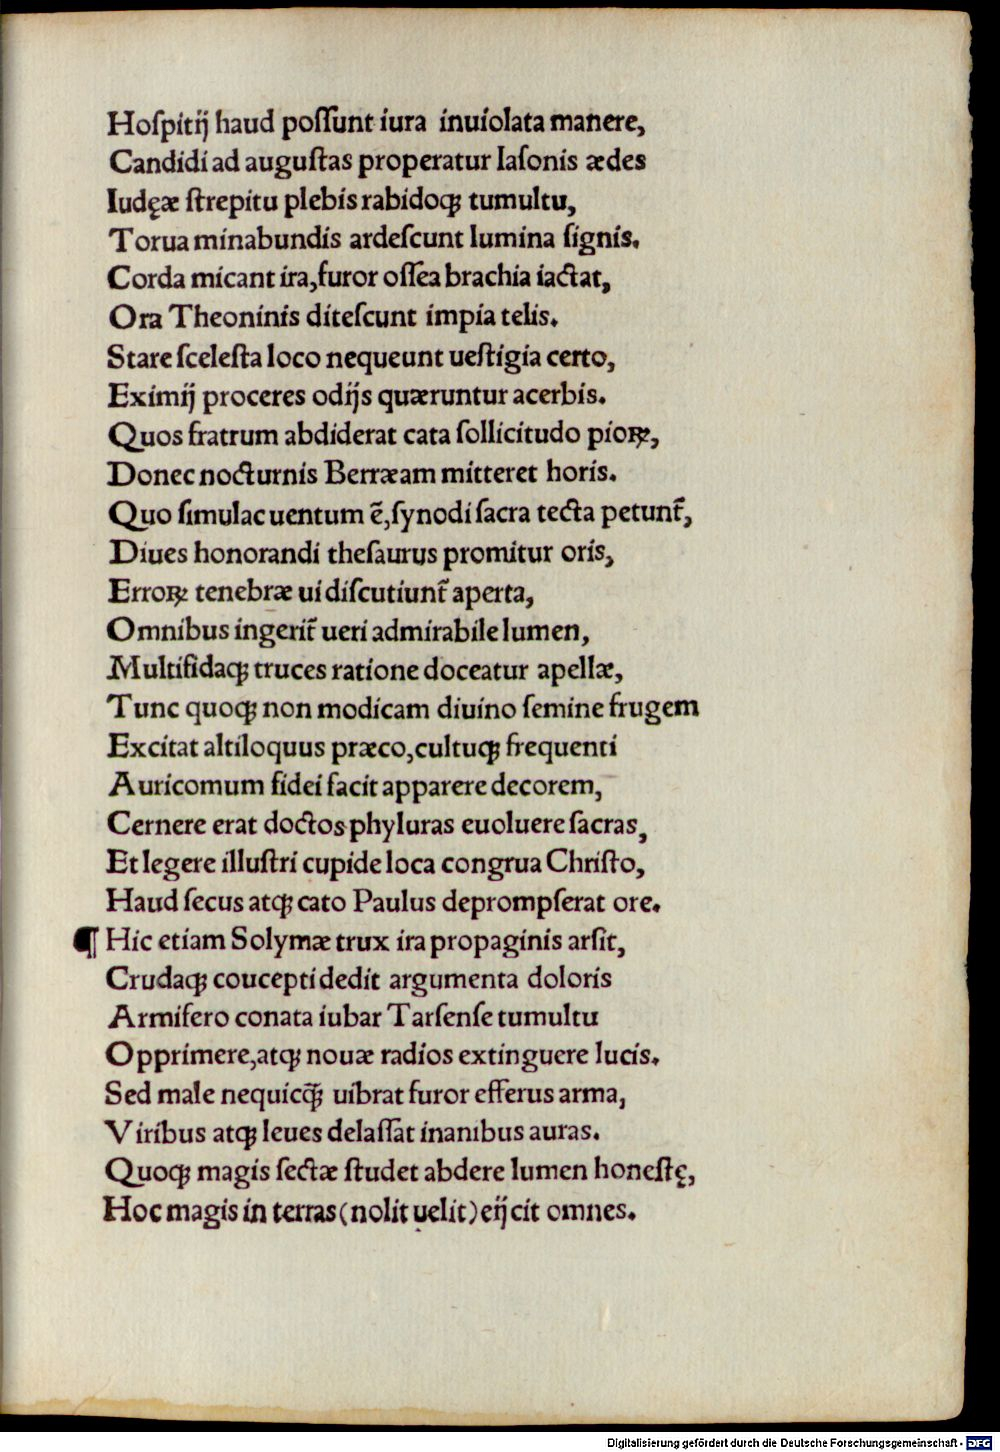 Hoſpitij haud poſſunt iura inuiolata manere,
Candidi ad auguſtas properatur Iaſonis ædes
Iudęæ ſtrepitu plebis rabidoqꝫ tumultu,
Torua minabundis ardeſcunt lumina ſignis.
Corda micant ira, furor oſſea brachia iactat,
Ora Theoninis diteſcunt impia telis.
Stare ſceleſta loco nequeunt ueſtigia certo,
Eximij proceres odijs quæruntur acerbis.
Quos fratrum abdiderat cata ſollicitudo pioꝝ,
Donec nocturnis Berræam mitteret horis.
Quo ſimulac uentum ē, ſynodi ſacra tecta petunt᷑,
Diues honorandi theſaurus promitur oris,
Erroꝝ tenebræ ui diſcutiunt᷑ aperta,
Omnibus ingerit᷑ ueri admirabile lumen,
Multifidaqꝫ truces ratione doceatur apellæ,
Tunc quoqꝫ non modicam diuino ſemine frugem
Excitat altiloquus præco, cultuqꝫ frequenti
Auricomum fidei facit apparere decorem,
Cernere erat doctos phyluras euoluere ſacras,
Et legere illuſtri cupide loca congrua Chriſto,
Haud ſecus atqꝫ cato Paulus deprompſerat ore.
¶ Hic etiam Solymæ trux ira propaginis arſit,
Crudaqꝫ coucepti dedit argumenta doloris
Armifero conata iubar Tarſenſe tumultu
Opprimere, atqꝫ nouæ radios extinguere lucis.
Sed male nequicq̃ꝫ uibrat furor efferus arma,
Viribus atqꝫ leues delaſſat inanibus auras.
Quoqꝫ magis ſectæ ſtudet abdere lumen honeſtę,
Hoc magis in terras (nolit uelit) eijcit omnes.
Digitalisierung gefördert durch die Deutsche Forschungsgemeinschaft - DFG